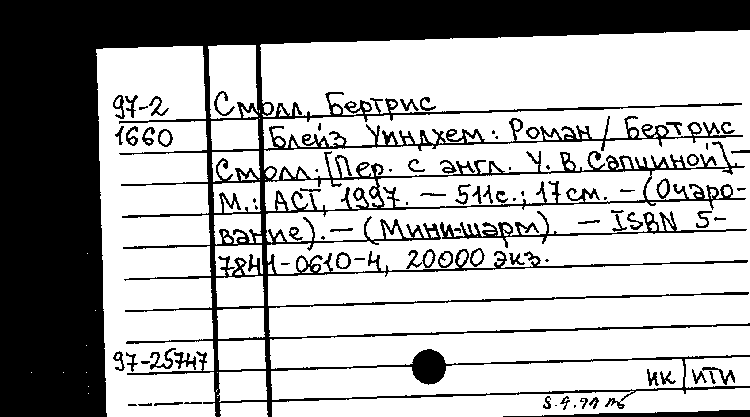 97-2 Смолл, Бертрис
1660 Блейз Уиндхем: Роман / Бертрис
Смолл; [Пер. с англ. У. В. Сапциной]. -
М.: АСТ, 1997. — 511с.; 17см. - (Очаро-
вание). — (Мини-шарм). — ISBN 5-
7841-0610-4, 20000 экз.
97-25747
ик | ити